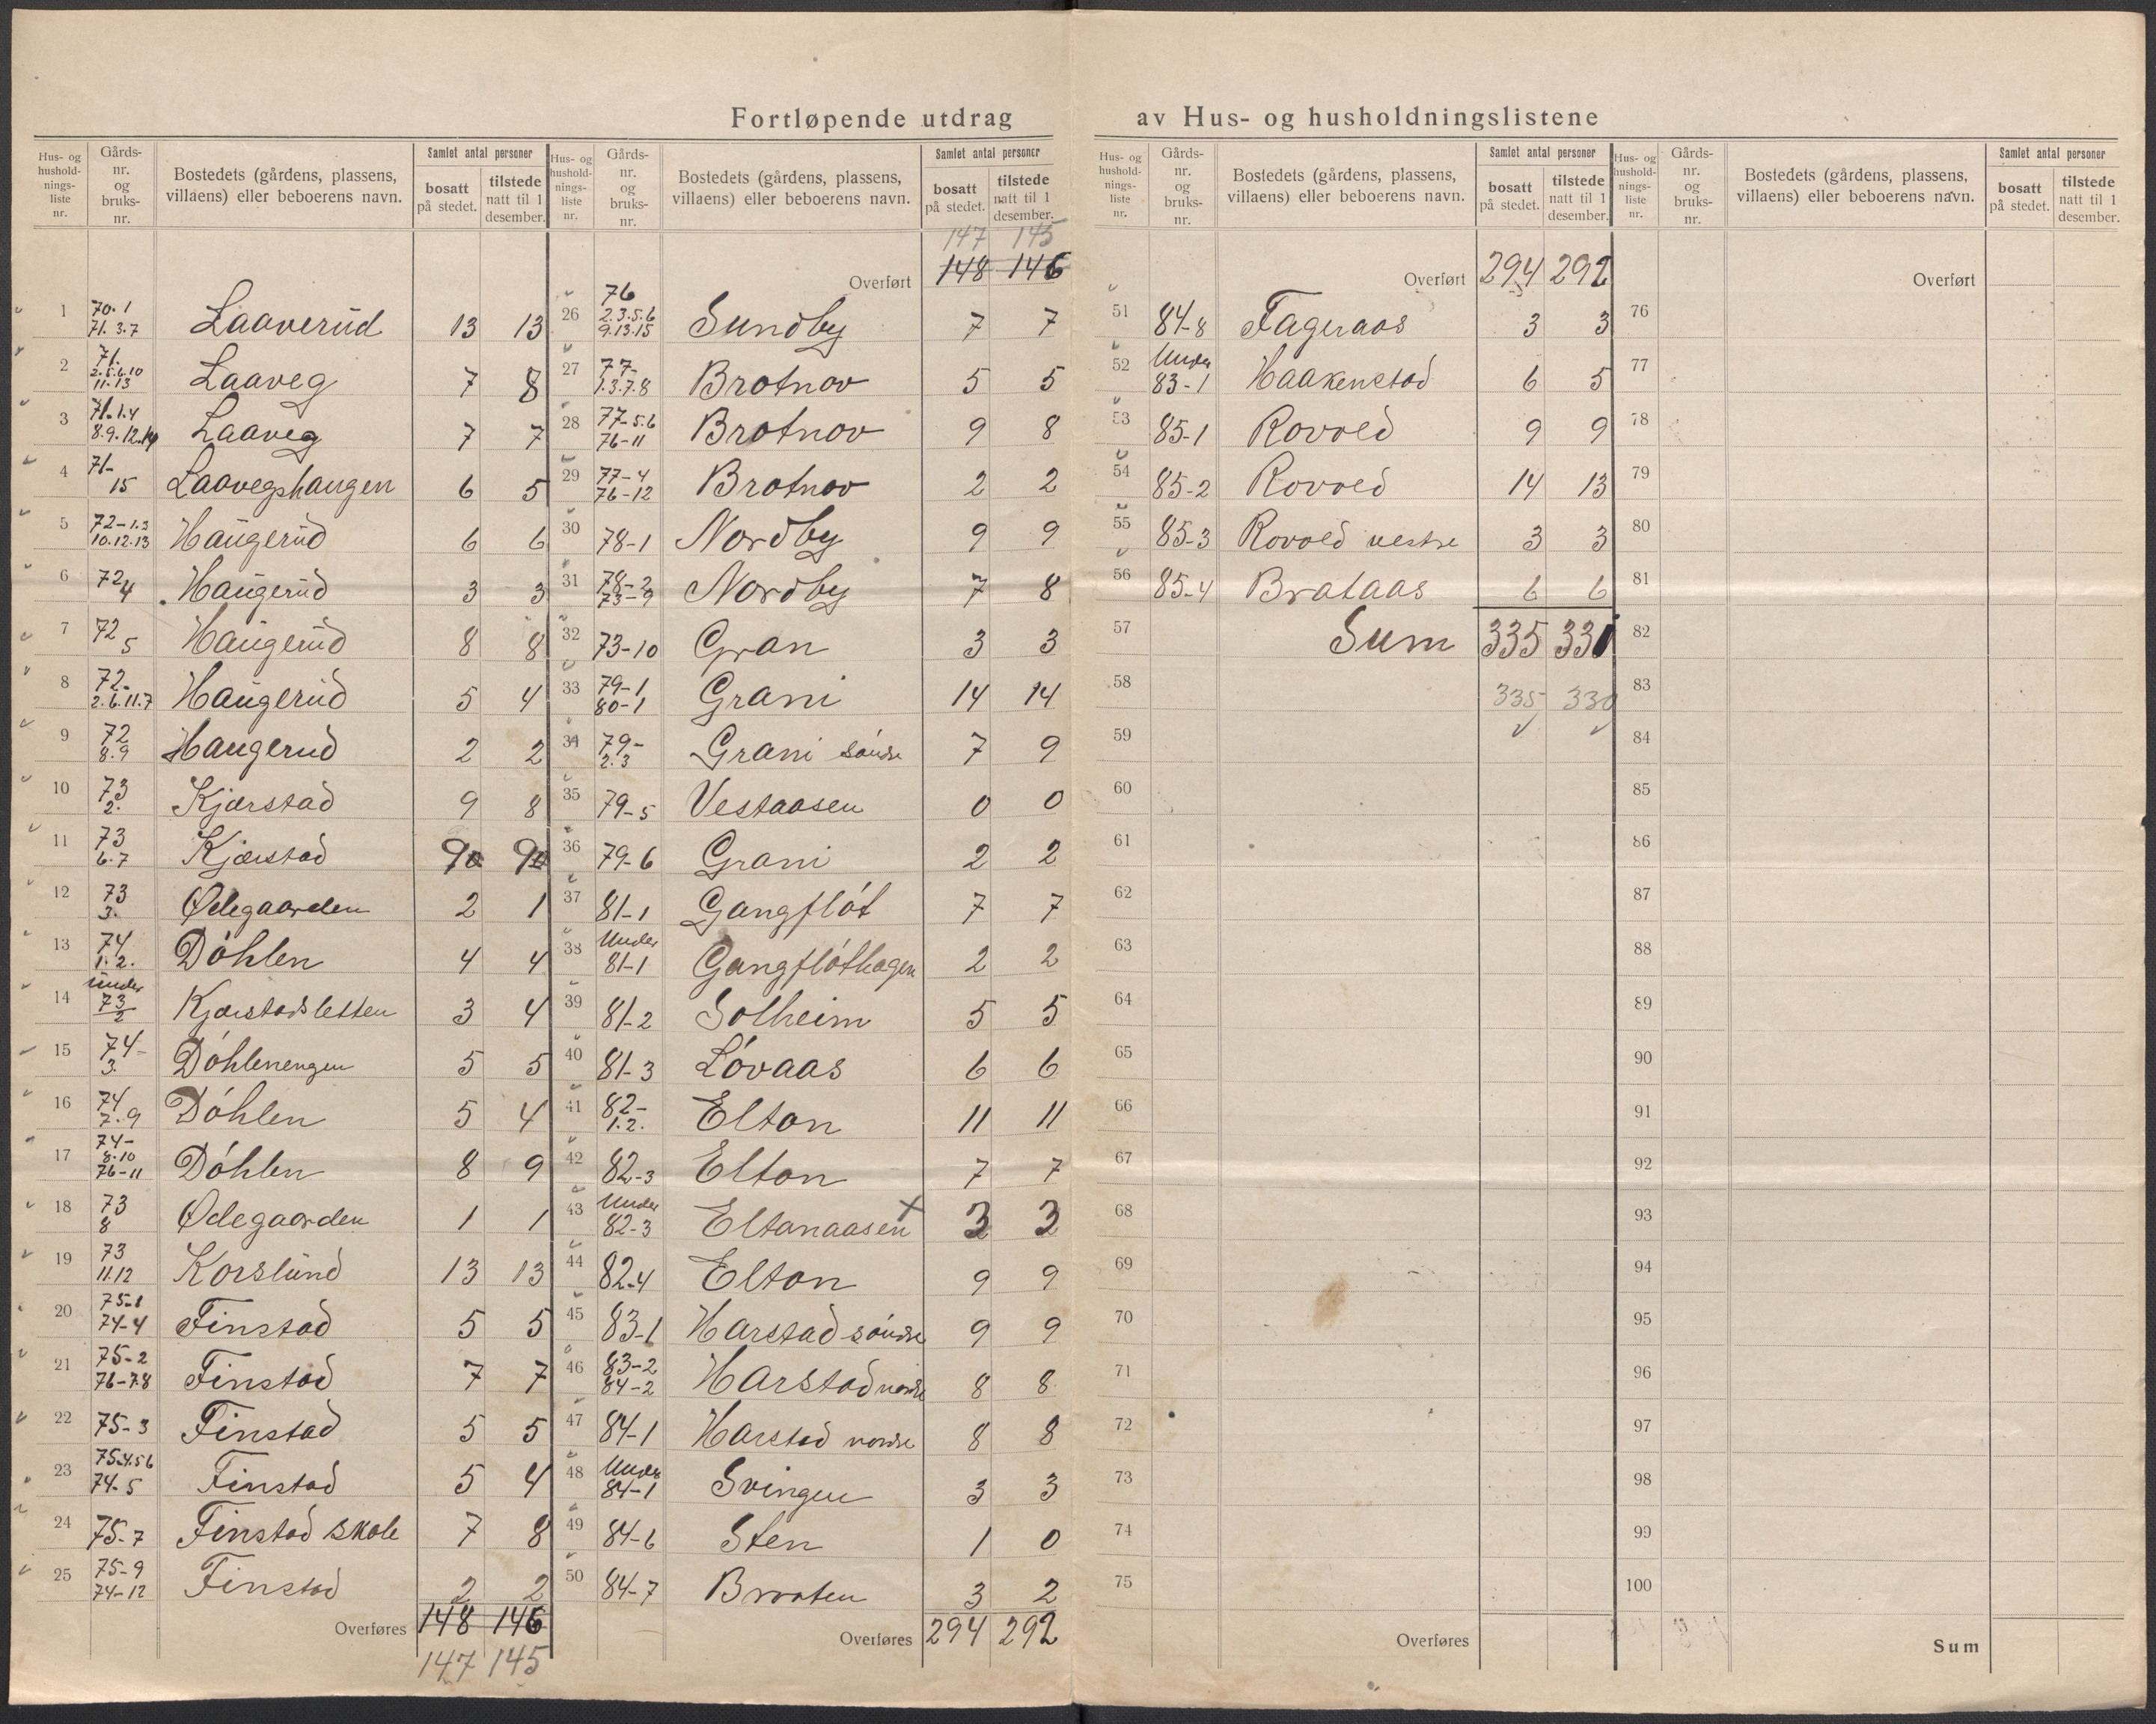 Fortløpende utdrag av Hus- og husholdningslistene
Hus- og husholdnings-liste nr. | Gårds-nr. og bruks-nr. | Bostedets (gårdens, plassens, villaens) eller beboerens navn. | Samlet antal personer | bosatt på stedet. | tilstede natt til 1 desember.
1 | 70.1 71.3.7 | Laaverud | 13 | 13
2 | 71. 2.5.6.10 11.13 | Laaveg | 7 | 8
3 | 71.1.4 8.9.12.14 | Laaveg | 7 | 7
4 | 71-15 | Laavegshaugen | 6 | 5
5 | 72-1.3 10.12.13 | Haugerud | 6 | 6
6 | 72 4 | Haugerud | 3 | 3
7 | 72 5 | Haugerud | 8 | 8
8 | 72- 2.6.11.7 | Haugerud | 5 | 4
9 | 72 8.9 | Haugerud | 2 | 2
10 | 73 2. | Kjærstad | 9 | 8
11 | 73 6.7 | Kjærstad | 9 | 9
12 | 73 3. | Ødegaarden | 2 | 1
13 | 74 1.2. | Döhlen | 4 | 4
14 | under 73/2 | Kjærstadsletten | 3 | 4
15 | 74- 3. | Döhlenengen | 5 | 5
16 | 74 7.9 | Döhlen | 5 | 4
17 | 74- 8.10 76-11 | Döhlen | 8 | 9
18 | 73 8 | Ødegaarden | 1 | 1
19 | 73 11.12 | Korslund | 13 | 13
20 | 75-1 74-4 | Finstad | 5 | 5
21 | 75-2 76-7.8 | Finstad | 7 | 7
22 | 75-3 | Finstad | 5 | 5
23 | 75-4.5 6 74-5 | Finstad | 5 | 4
24 | 75-7 | Finstad skole | 7 | 8
25 | 75-9 74-12 | Finstad | 2 | 2
Overføres 148 146
147 145
Hus- og husholdnings-liste nr. | Gårds-nr. og bruks-nr. | Bostedets (gårdens, plassens, villaens) eller beboerens navn. | Samlet antal personer | bosatt på stedet. | tilstede natt til 1 desember.
147 145
Overført 148 146
26 | 76 2.3.5.6 9.13.15 | Sundby | 7 | 7
27 | 77- 1.3.7.8 | Brotnov | 5 | 5
28 | 77-5.6 76-11 | Brotnov | 9 | 8
29 | 77-4 76-12 | Brotnov | 2 | 2
30 | 78-1 | Nordby | 9 | 9
31 | 78-2 73-9 | Nordby | 7 | 8
32 | 73-10 | Gran | 3 | 3
33 | 79-1 80-1 | Grani | 14 | 14
34 | 79- 2.3 | Grani söndre | 7 | 9
35 | 79-5 | Vestaasen | 0 | 0
36 | 79-6 | Grani | 2 | 2
37 | 81-1 | Gangflöt | 7 | 7
38 | Under 81-1 | Gangflöthagen | 2 | 2
39 | 81-2 | Solheim | 5 | 5
40 | 81-3 | Lövaas | 6 | 6
41 | 82- 1.2. | Elton | 11 | 11
42 | 82-3 | Elton | 7 | 7
43 | Under 82-3 | Eltonaasen x | 3 | 3
44 | 82-4 | Elton | 9 | 9
45 | 83-1 | Harstad söndre | 9 | 9
46 | 83-2 84-2 | Harstad nordre | 8 | 8
47 | 84-1 | Harstad nordre | 8 | 8
48 | Under 84-1 | Svingen | 3 | 3
49 | 84-6 | Sten | 1 | 0
50 | 84-7 | Braaten | 3 | 2
Overføres 294 292
Hus- og husholdnings-liste nr. | Gårds-nr. og bruks-nr. | Bostedets (gårdens, plassens, villaens) eller beboerens navn. | Samlet antal personer | bosatt på stedet. | tilstede natt til 1 desember.
Overført 294 292
51 | 84-8 | Fageraas | 3 | 3
52 | Under 83-1 | Haakenstad | 6 | 5
53 | 85-1 | Rovold | 9 | 9
54 | 85-2 | Rovold | 14 | 13
55 | 85-3 | Rovold vestre | 3 | 3
56 | 85-4 | Brataas | 6 | 6
57 | Sum | 335 | 331
58 | 335 | 330
59
60
61
62
63
64
65
66
67
68
69
70
71
72
73
74
75
Overføres
Hus- og husholdnings-liste nr. | Gårds-nr. og bruks-nr. | Bostedets (gårdens, plassens, villaens) eller beboerens navn. | Samlet antal personer | bosatt på stedet. | tilstede natt til 1 desember.
Overført
76
77
78
79
80
81
82
83
84
85
86
87
88
89
90
91
92
93
94
95
96
97
98
99
100
Sum